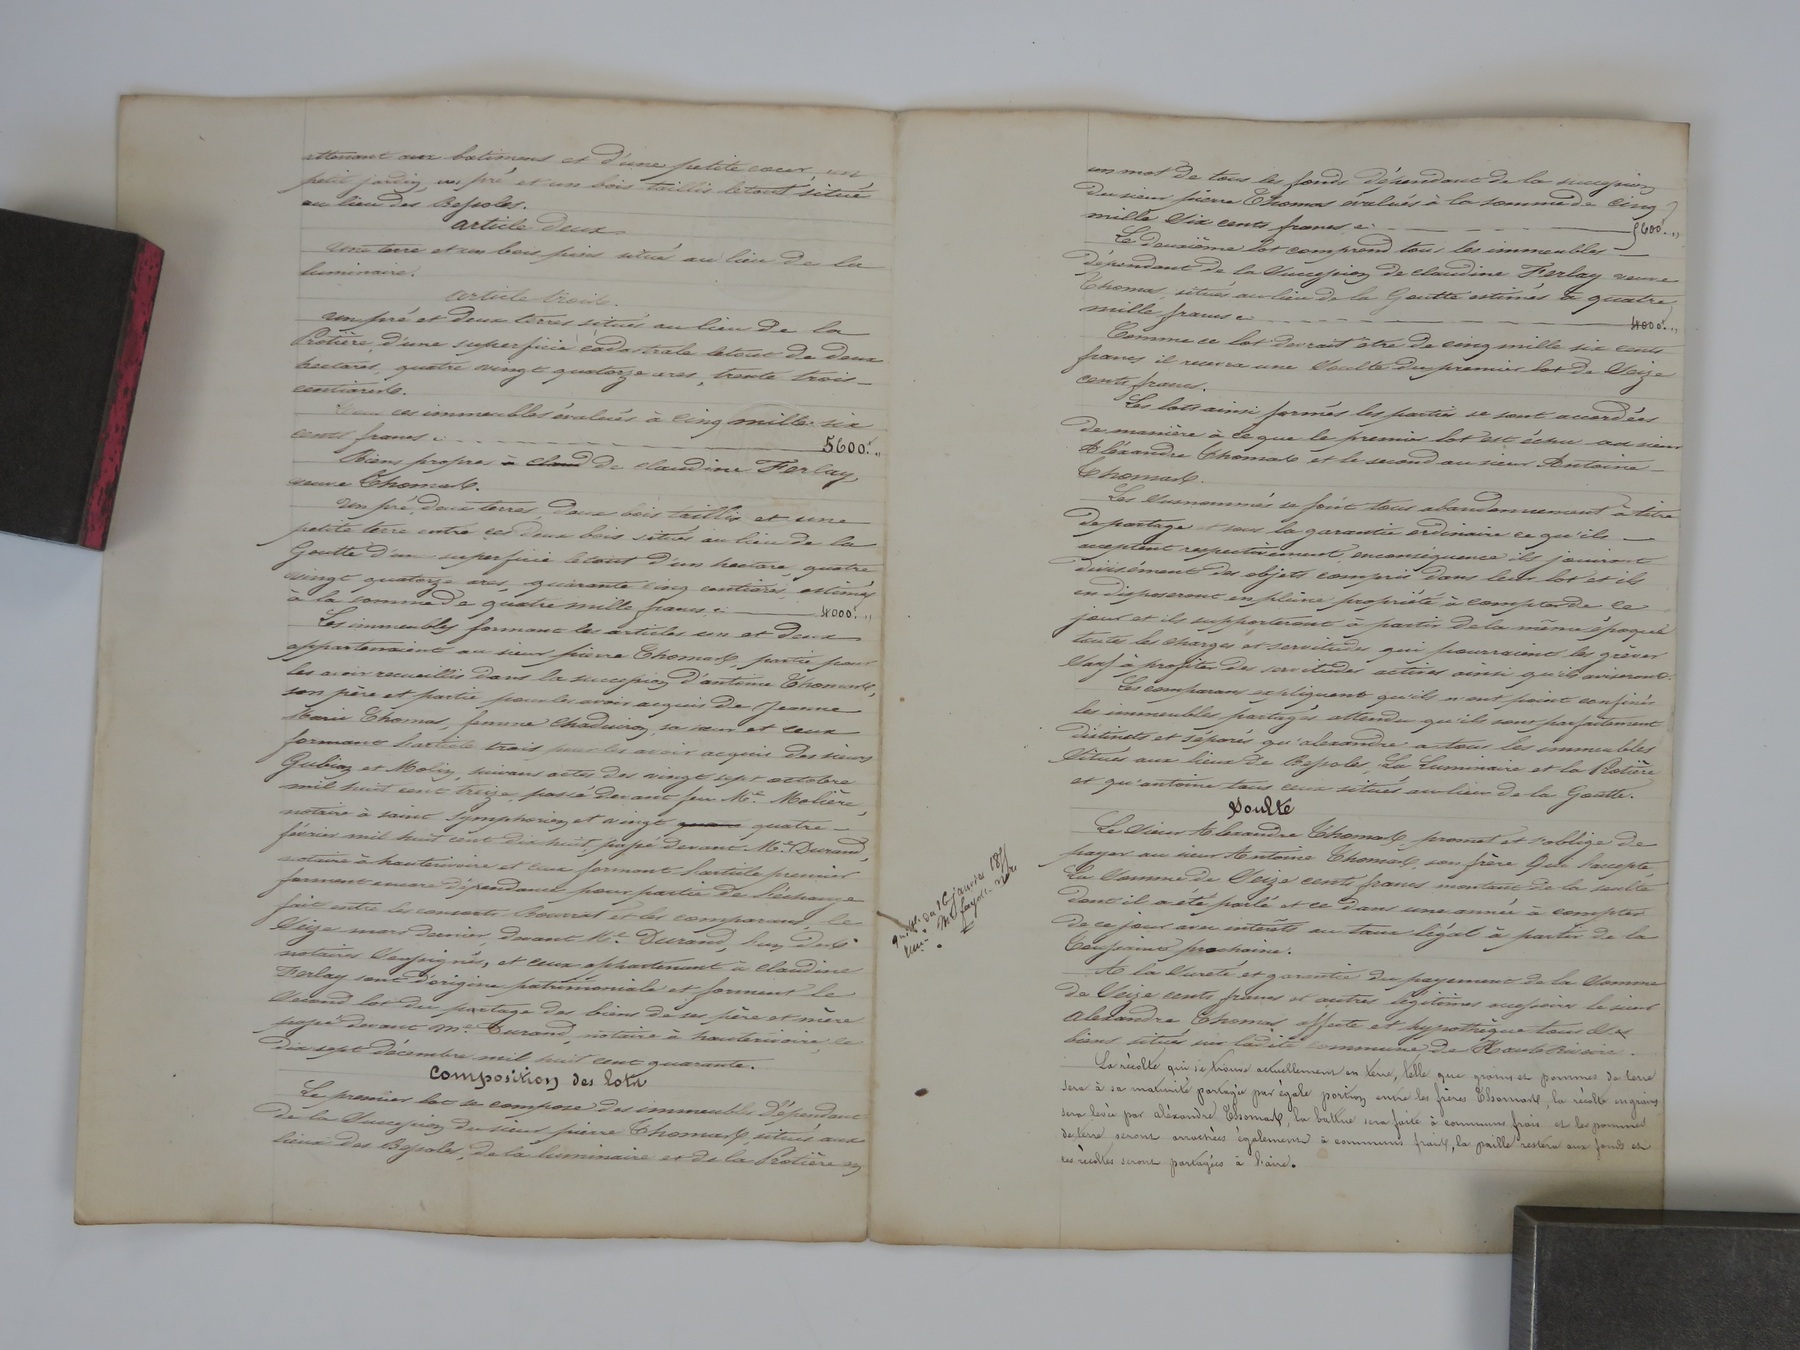 attenant aux batimens et d'une petite cour, un
petit jardin, un pré et un bois taillis le tout situé
au lieu des Bessoles.
article deux
une terre et un bois pins situé au lieu de la
luminaire.
article trois.
un pré et deux terres situés au lieu de la
Rotière, d'une superficie cadastrale le tout de deux
hectares, quatre vingt quatorze ares, trente trois
centiares.
ces immeubles évalués à cinq mille six
cents francs c. 5600. "
Biens propres à claud de claudine Ferlay
veuve Thomas.
un pré, deux terres deux bois taillis et une
petite terre entre ces deux bois situés au lieu de la
Goutte d'une superficie le tout d'un hectare, quatre
vingt quatorze ares, quarante cinq centiares, estimés
à la somme de quatre mille francs c. 4000. "
Les immeubles formant les articles un et deux
appartenaient au sieur pierre Thomas, partie pour
les avoir recueillis dans la succession d'antoine Thomas,
son père et partie pour les avoir acquis de Jeanne
Marie Thomas, femme Chaduiron, sa sœur et ceux
formant l'article trois pour les avoir acquis des sieurs
Gubian et Molin, suivant actes des vingt sept octobre
mil huit cent treize, passé devant feu Me. Molière,
notaire à saint Symphorien et vingt quatre
février mil huit cent dix huit, passé devant Me. Durand,
notaire à hauterivoire et ceux formant l'article premier
forment encore dépendance pour partie de l'échange
fait entre les consorts et les comparans, le
Seize mars dernier, devant Me. Durand, l'un des
notaires Soussignés, et ceux appartenant à claudine
Ferlay sont d'origine patrimoniale et forment le
Second lot du partage des biens de ses père et mère
passé devant Me. Durand, notaire à hauterivoire, le
dix sept décembre mil huit cent quarante.
Composition des lots
Le premier lot se compose des immeubles dépendant
de la Succession du sieur pierre Thomas, situés aux
lieux des Bessoles, de la luminaire et de la Rotière en
un mot de tous les fonds dépendant de la succession
du sieur pierre Thomas évalués à la somme de cinq
mille Six cents francs c. 5600. "
Le deuxième lot comprend tous les immeubles
dépendant de la Succession de claudine Ferlay veuve
Thomas, situés au lieu de la Goutte estimés à quatre
mille francs c. 4000. "
Comme ce lot devrait être de cinq mille six cents
francs il recevra une Soulte du premier lot de Seize
cents francs.
Les lots ainsi formés les parties se sont accordées
de manière à ce que le premier lot est échu au sieur
Aléxandre Thomas et le second au sieur Antoine
Thomas.
Les Susnommés se font tous abandonnement à titre
de partage et sous la garantie ordinaire ce qu'ils
acceptent respectivement, en conséquence ils jouiront
divisément des objets compris dans leur lot et ils
en disposeront en pleine propriété à compter de ce
jour et ils supporteront à partir de la même époque
toutes les charges et servitudes qui pourraient les grêver
Sauf à profiter des servitudes actives ainsi qu'ils aviseront.
Les comparans expliquent qu'ils n'ont point confiné
les immeubles partagés attendu qu'ils sont parfaitement
distincts et séparés qu'alexandre a tous les immeubles
Situés aux lieux de Bessoles, La Luminaire et la Rotière
et qu'antoine tous ceux situés au lieu de la Goutte.
Soulte
Le Sieur Alexandre Thomas, promet et s'oblige de
payer au sieur Antoine Thomas, son frère qui l'accepte
La Somme de Seize cents francs montant de la soulte
dont il a été parlé et ce dans une année à compter
de ce jour avec intérêts au taux légal à partir de la
Toussaint prochaine.
A la Sureté et garantie du payement de la Somme
de Seize cents francs et autres légitimes accessoires le sieur
Alexandre Thomas affecte et hypothèque tous Ses
biens situés sur ladite commune de Hauterivoire.
La récolte qui se trouve actuellement en terre, telle que grains et pommes de terre
sera à sa maturité partagée par égale portion entre les frères Thomas, la récolte en grains
sera levée par aléxandre Thomas, la battue sera faite à communs frais et les pommes
de terre seront arrachées également à communs frais, la paille restera aux fonds et
les récoltes seront partagées à l'aire.
du 16 janvier 18